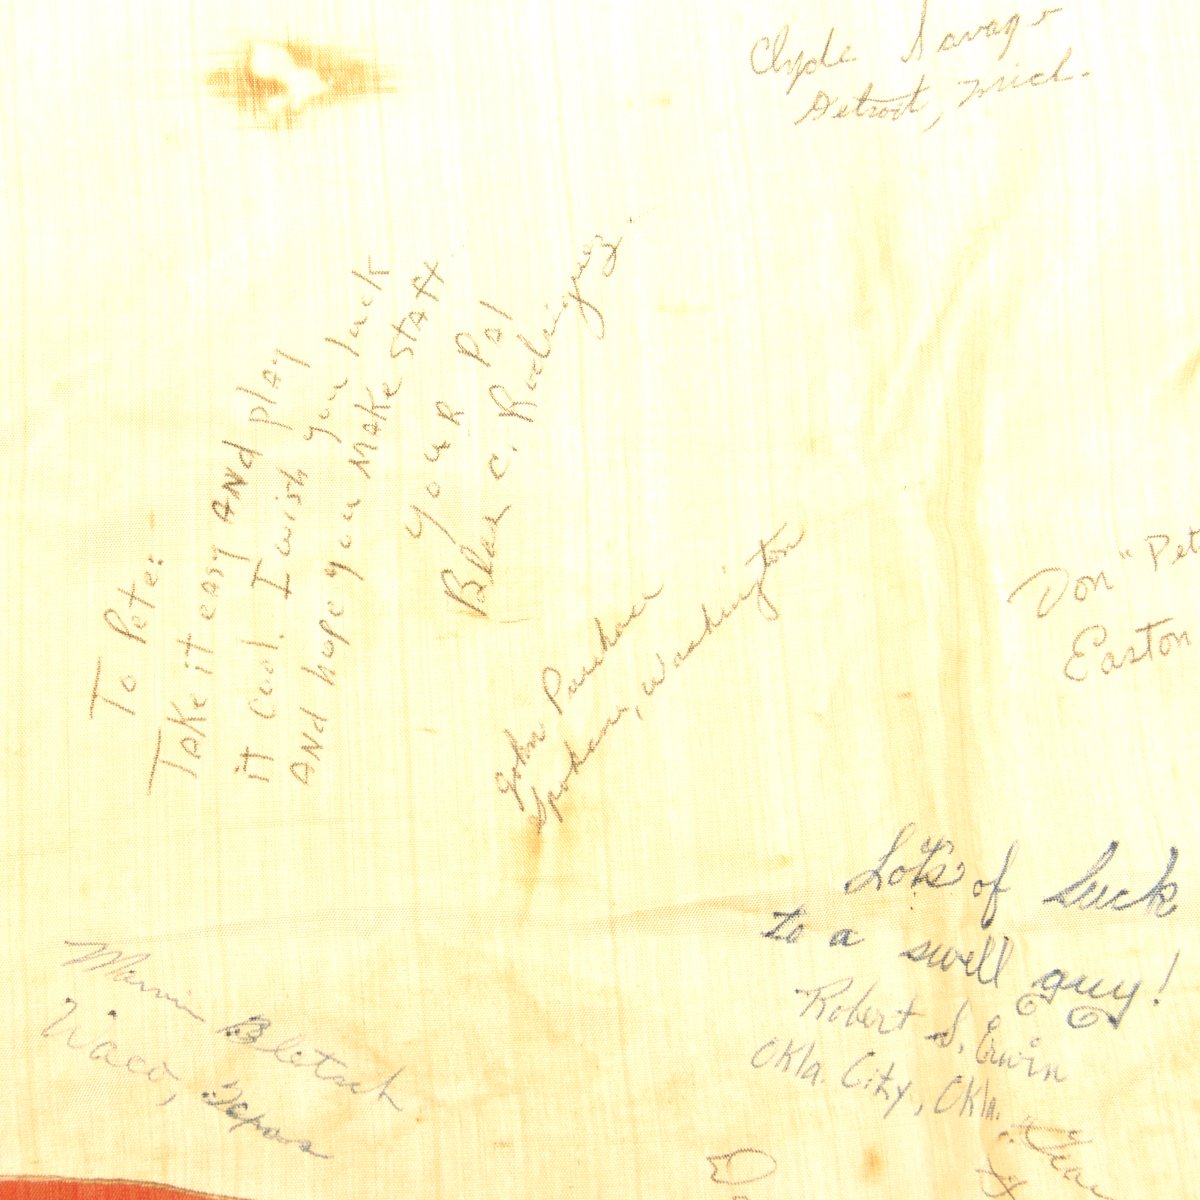 Clyde Savage
Detroit, Mich.
To Pete:
Take it easy AND play
it cool. I wish you luck
AND hope you MAKE STAFF
your Pal
C. Rodriguez.
John
Spokane, Washington
Don "Pet
Easton
Lots of Luck
to a swell guy!
Robert S. Erwin
Okla. City, Okla.
Marvin
Waco, Texas